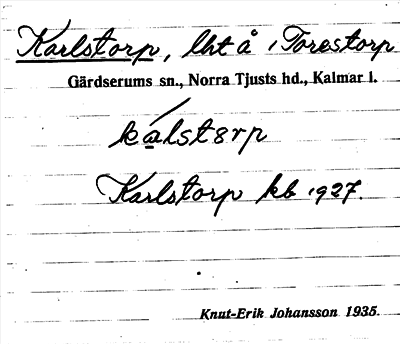 Karlstorp, lht å Torestorp
Gärdserums sn., Norra Tjusts hd., Kalmar l.
kálst8rp
Karlstorp kb 1927.
Knut-Erik Johansson 1935.